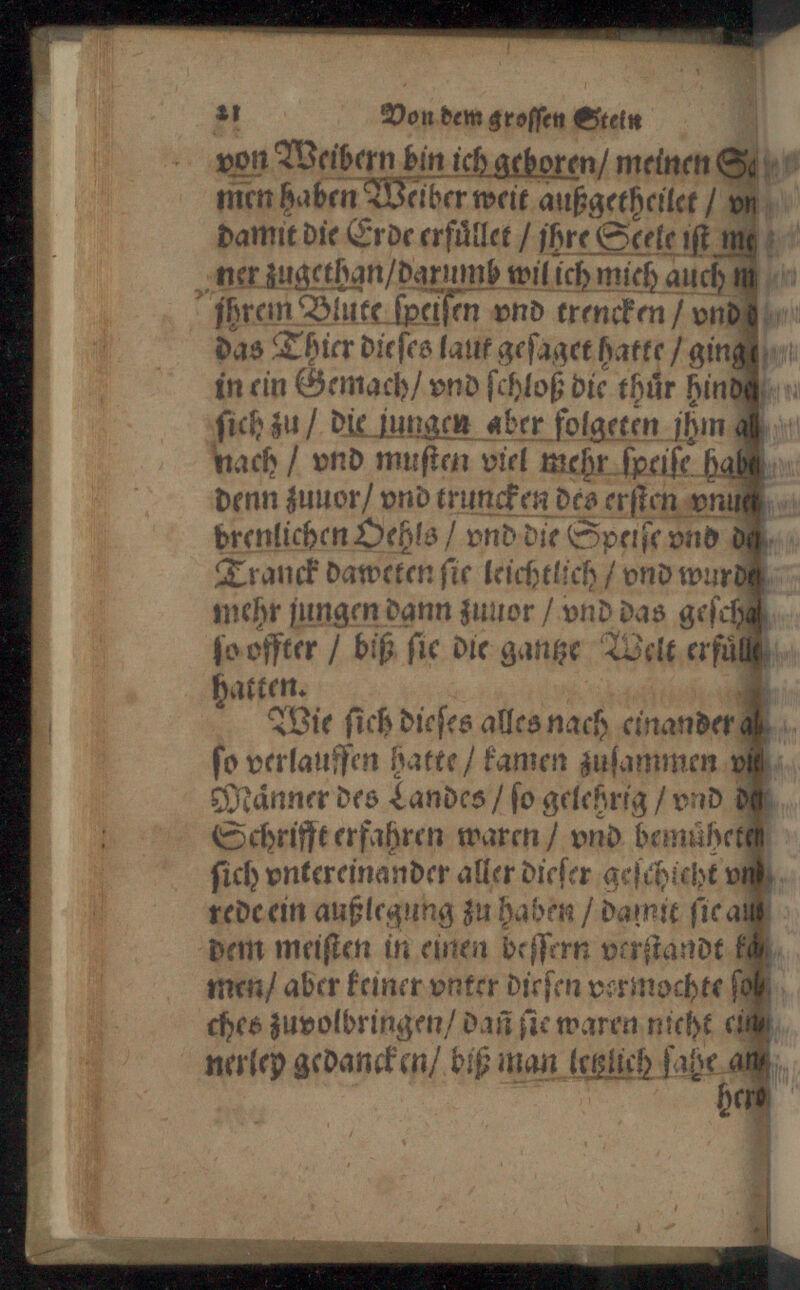 21 Von dem groſſen Stein
von Weibern bin ich geboren/ meinen
men haben Weiber weit außgetheilet /
damit die Erde erfuͤllet / jhre Seele iſt
ner zugethan/darumb wil ich mich auch
jhrem Blute ſpeiſen vnd trencken /
das Thier dieſes laut geſaget hatte /
in ein Gemach/ vnd ſchloß die thuͤr
ſich zu / die jungen aber folgeten jhm
nach / vnd muſten viel mehr ſpeiſe
denn zuuor/ vnd truncken des erſten
brenlichen Oehls / vnd die Speiſe vnd
Tranck daweten ſie leichtlich / vnd
mehr jungen dann zuuor / vnd das
ſo offter / biß ſie die gantze Welt
hatten.
Wie ſich dieſes alles nach einander
ſo verlauffen hatte / kamen zuſammen
Maͤnner des Landes / ſo gelehrig / vnd
Schrifft erfahren waren / vnd
ſich vntereinander aller dieſer geſchicht
rede ein außlegung zu haben / damit ſie
dem meiſten in einen beſſern verſtandt
men/ aber keiner vnter dieſen vermochte
ches zuvolbringen/ dañ ſie waren nicht
nerley gedancken/ biß man letzlich ſahe